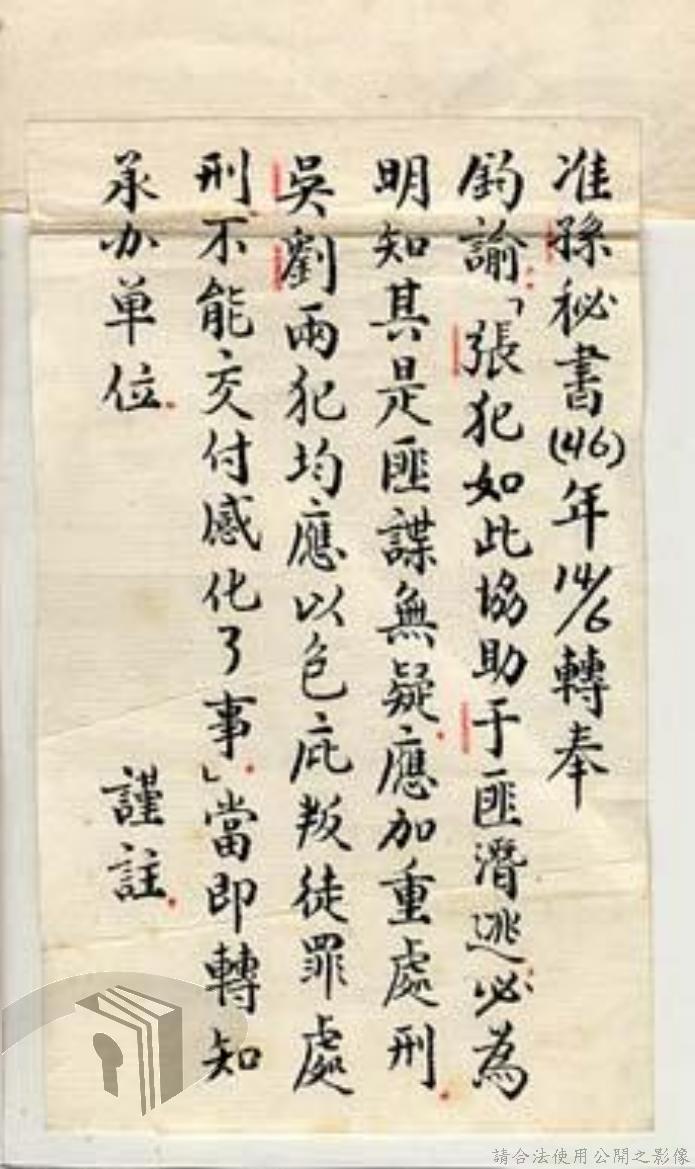 准孫秘書(46)年14/6轉奉
鈞諭「張犯如此協助于匪潛逃必為
明知其是匪諜無疑應加重處刑
吳劉兩犯均應以包庇叛徒罪處
刑不能交付感化了事」當即轉知
承办单位
謹註
請合法使用公開之影像